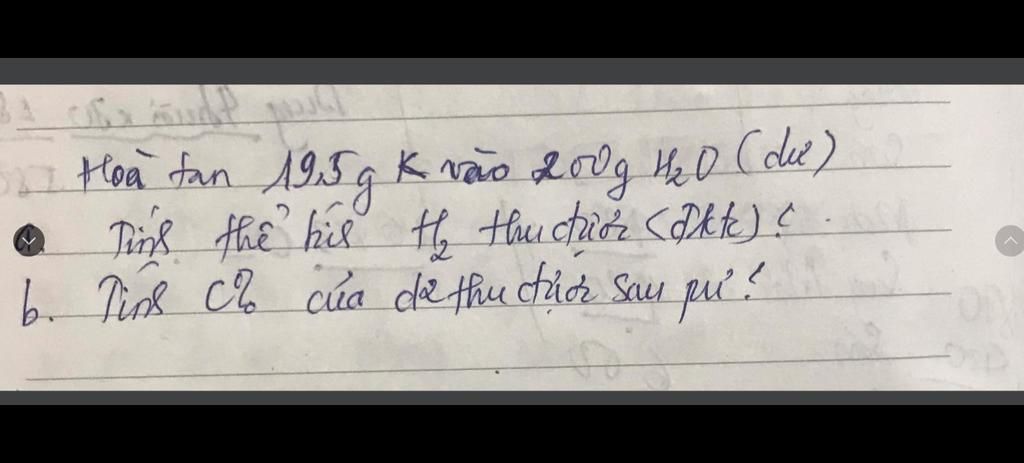 Hoà tan 19,5g K vào 200g H₂O (dư)
a. Tính thể tích H₂ thu được (Đktc)?
b. Tính C% của dd thu được sau pư?